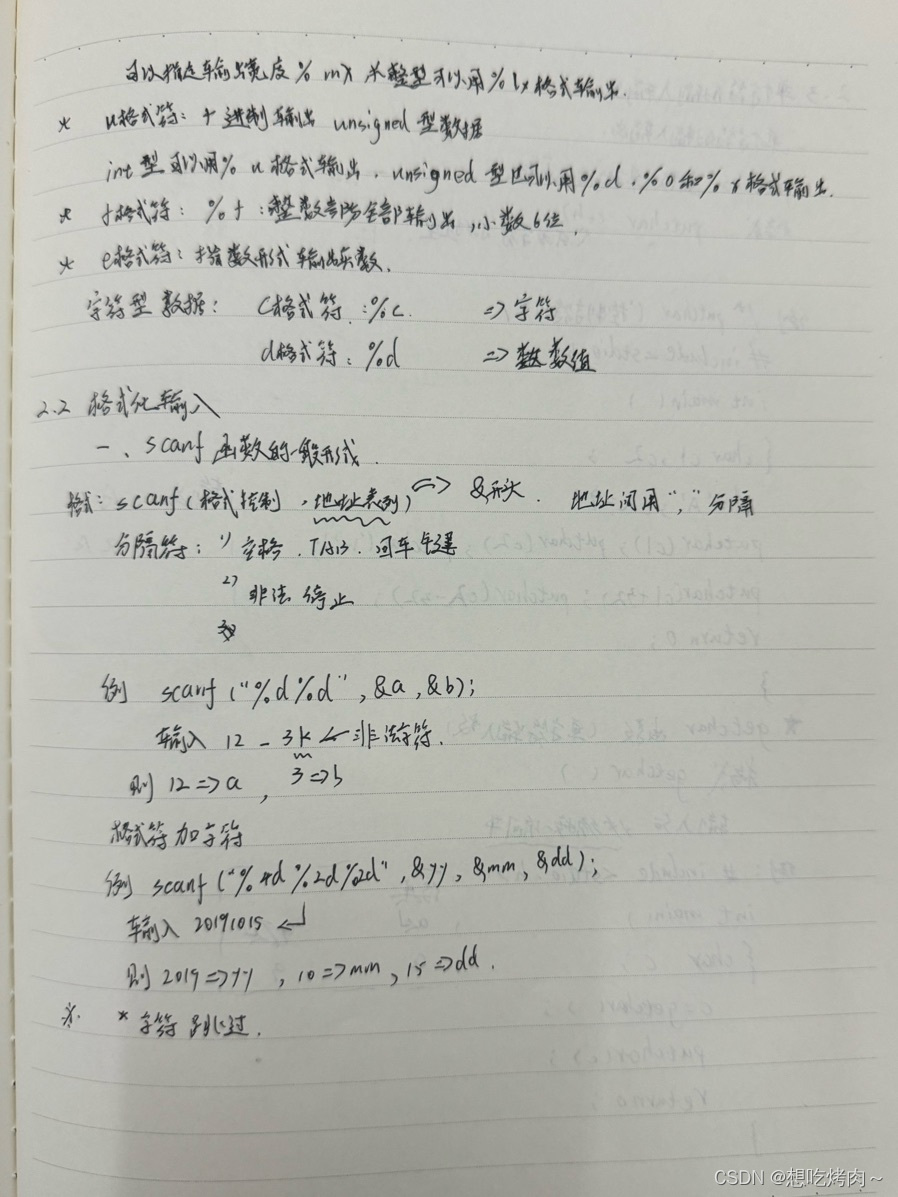 可以指定输出宽度 % mx 长整型可以用%lx格式输出.
* u格式符: 十进制输出 unsigned 型数据
int型可以用% u 格式输出. unsigned 型也可以用%d . %o和% x 格式输出.
* f格式符: %f :整数部分全部输出,小数6位.
* e格式符: 指数形式输出实数.
字符型数据: C格式符 :%c. => 字符
d格式符: %d => 数值
2.2 格式化输入
一、scanf 函数的一般形式.
格式: scanf(格式控制,地址表列) => &开头. 地址间用","分隔
分隔符: 1) 空格.TAB.回车
2) 非法停止
例 scanf("%d%d",&a,&b);
输入 12 _ 3k ← 非法字符.
则 12=>a , 3=>b
格式符加字符
例 scanf("%4d%2d%2d",&yy,&mm,&dd);
输入 20191015 ↵
则 2019=>yy , 10=>mm, 15=>dd.
※. * 字符 跳过.
CSDN @想吃烤肉~